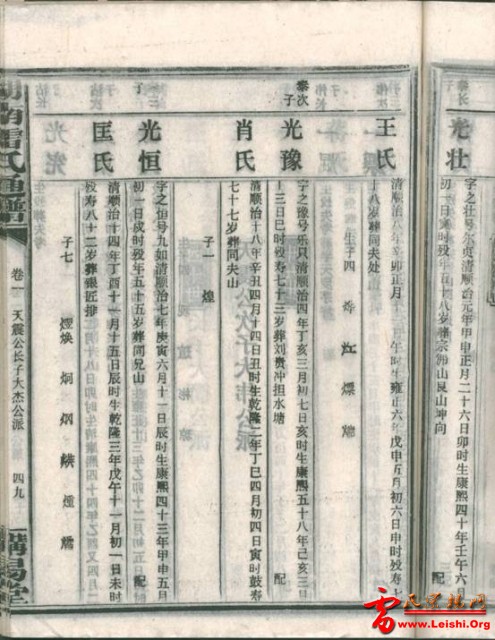 光壮
字之壮号尔贡清顺治元年甲申正月二十六日卯时生康熙四十年壬午六
初一日寅时殁年五十八岁葬宗佃山艮山坤向
王氏
清顺治八年辛卯正月十三日午时生雍正六年戊申五月初六日申时殁寿七
十八岁葬同夫处
生子四 烨 灴 熛 熵
紊次子
光豫
字之豫号乐只清顺治四年丁亥三月初七日亥时生康熙五十八年己亥三月
十三日巳时殁寿七十三岁葬刘贵冲担水塘 配
肖氏
清顺治十八年辛丑四月十四日丑时生乾隆二年丁巳四月初四日寅时殁寿
七十七岁葬同夫山
子一 煌
光恒
字之恒号九如清顺治七年庚寅六月十一日辰时生康熙四十三年甲申五月
初一日戌时殁年五十五岁葬同兄山 配
匡氏
清顺治十四年丁酉十一月十五日辰时生乾隆三年戊午十一月初一日未时
殁寿八十二岁葬银匠排
子七 焕 炯 炳
氏通谱
卷一
天震公长子大杰公派
四九
雷氏宗亲网
www.Leishi.Org